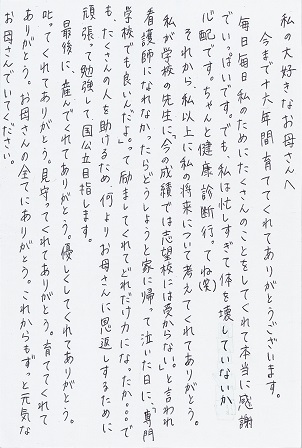 私の大好きなお母さんへ
今まで十六年間育ててくれてありがとうございます。
毎日毎日私のためにたくさんのことをしてくれて本当に感謝
でいっぱいです。でも、私は忙しすぎて体を壊していないか
心配です。ちゃんと健康診断行ってね(笑)
それから、私以上に私の将来について考えてくれてありがとう。
私が学校の先生に、「今の成績では志望校には受からない。」と言われ
看護師になれなかったらどうしようと家に帰って泣いた日に、「専門
学校でも良いんだよ。」って励ましてくれてどれだけ力になったか。。。で
も、たくさんの人を助けるため何よりお母さんに恩返しするために
頑張って勉強して国公立目指します。
最後に、産んでくれてありがとう。優しくしてくれてありがとう。
叱ってくれてありがとう。見守ってくれてありがとう。育ててくれて
ありがとう。お母さんの全てにありがとう。これからもずっと元気な
お母さんでいてください。